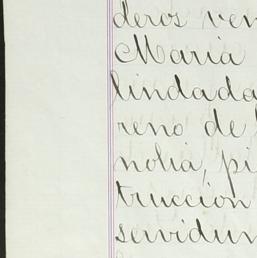 deros ven
Maria
lindada
reno de
nolia, pi
trucción
servidum